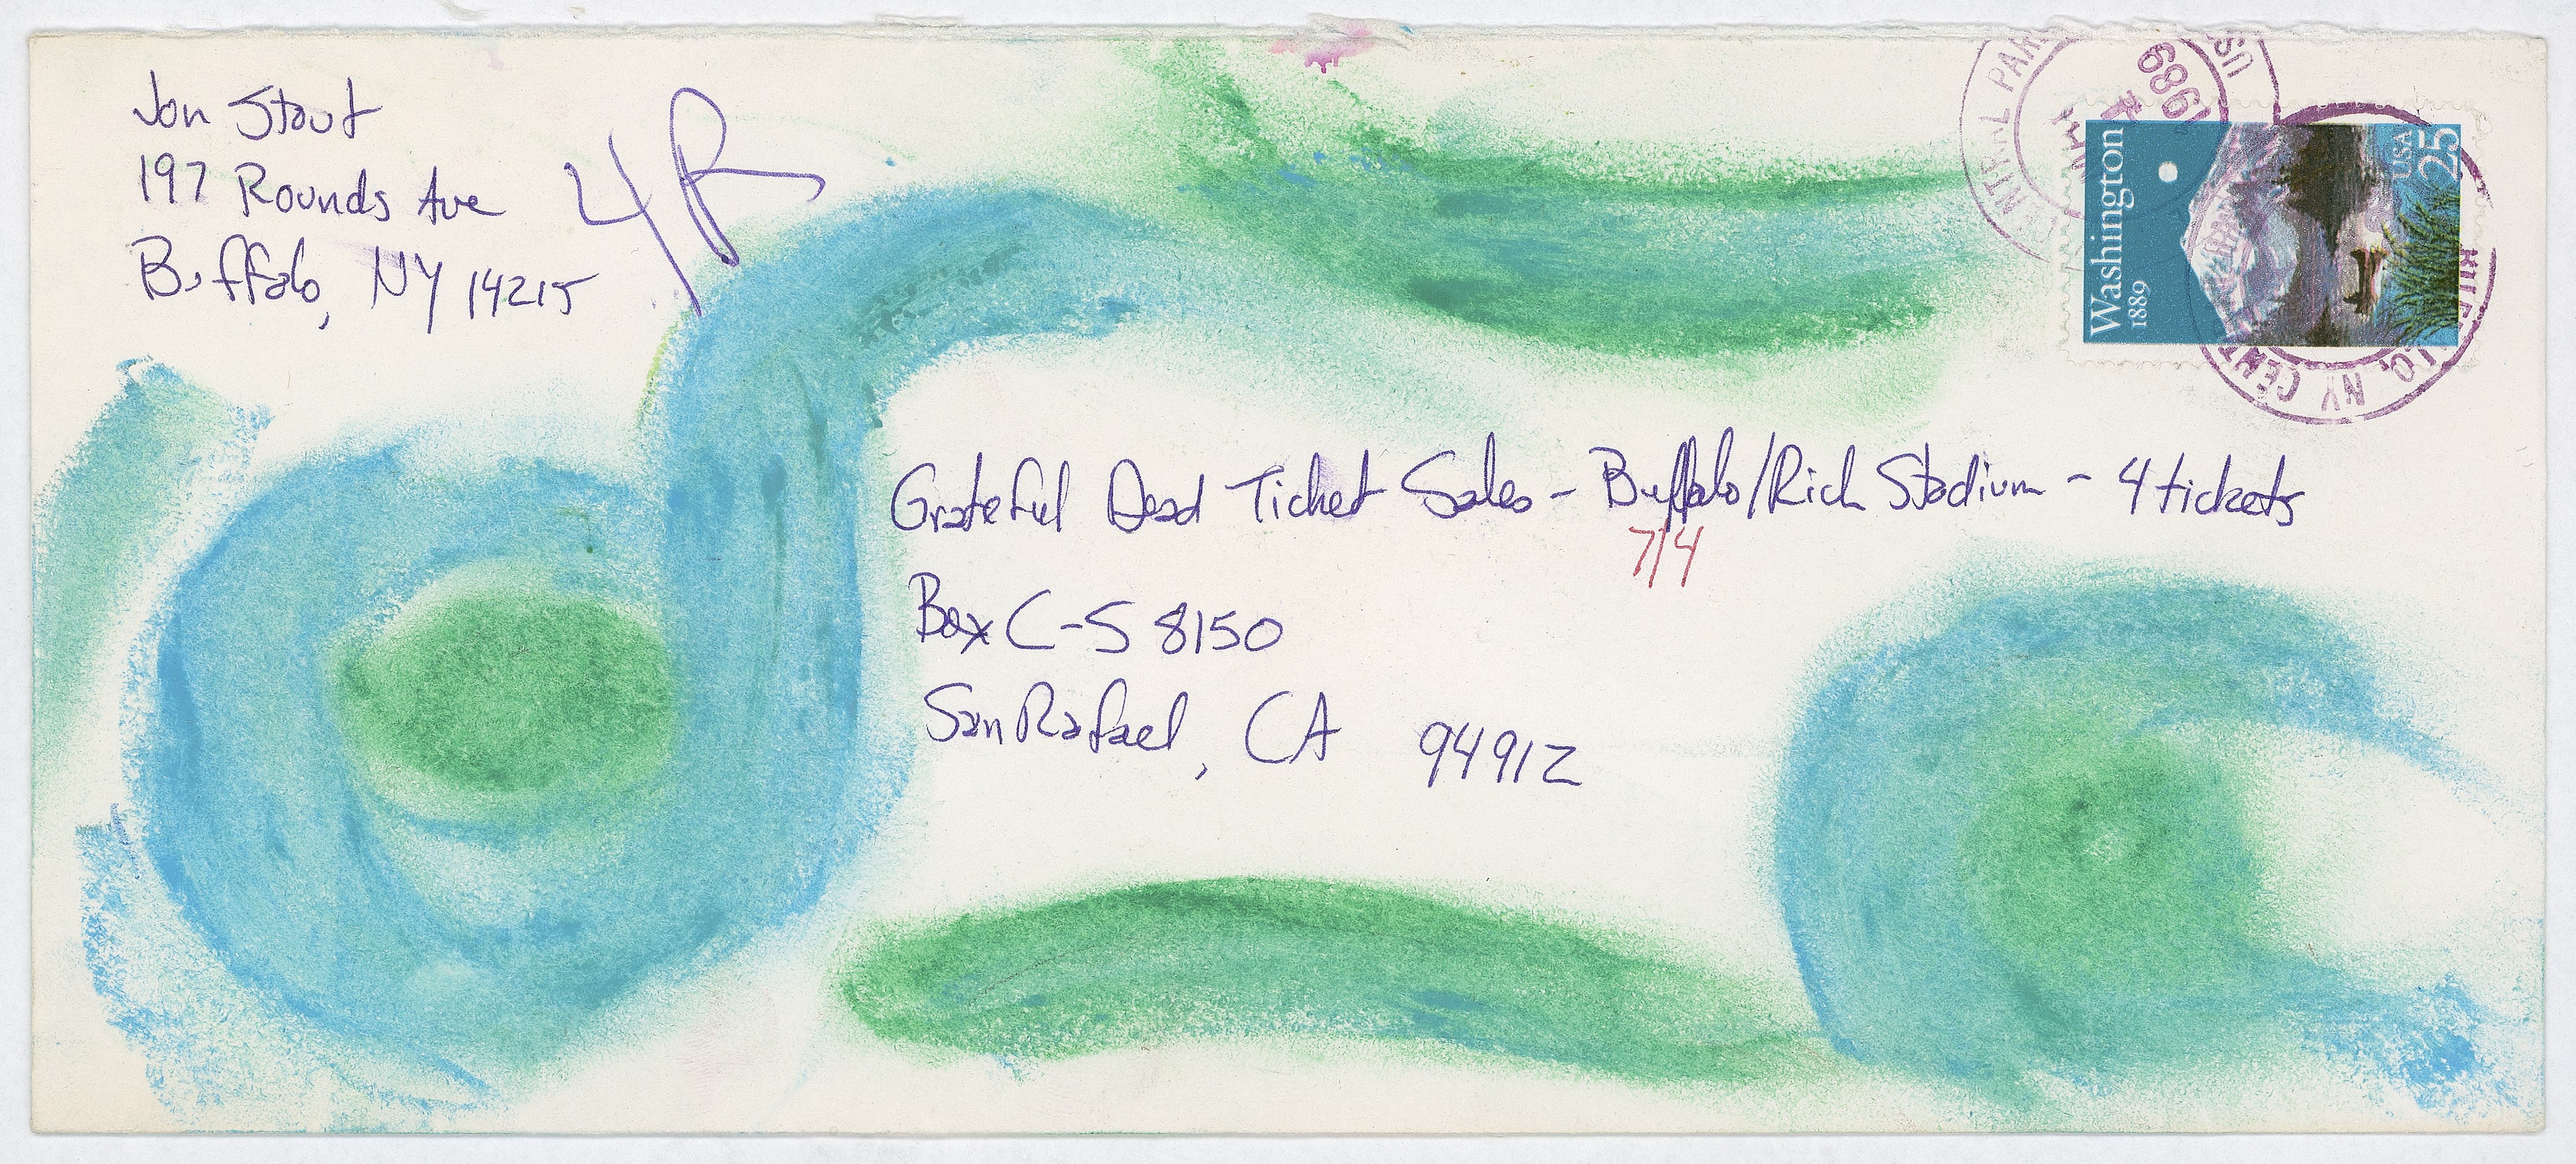 Jon Stout
197 Rounds Ave
Buffalo, NY 14215
4R
1989
Washington
1889
USA
25
NY CENT
Grateful Dead Ticket Sales - Buffalo/Rich Stadium - 4 tickets
7/4
Box C-S 8150
San Rafael, CA 94912